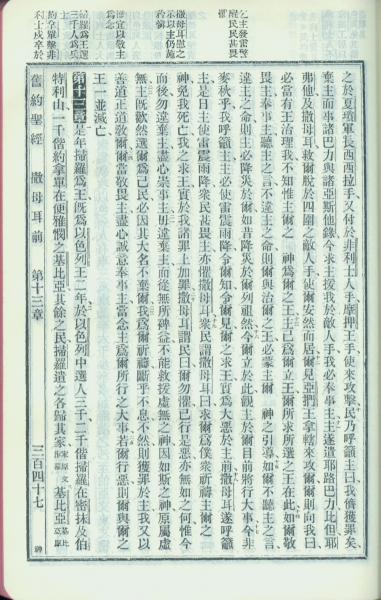 主發雷雨
民甚畏
撒母耳慰之
示以主仍施
矜憫
惟宜敬主
掃羅爲王選
三千人爲兵
約拿單擊非
利士戍卒於
之於夏瑣軍長西西拉手又付於非利士人手摩押王手使來攻擊民乃呼籲主曰我儕獲罪矣
棄主而事諸巴力與諸亞斯他錄今求主援我於敵人手我必奉事主主遂遣耶路巴力比但耶
弗他及撒母耳救爾脫於四圍之敵人手使爾安然而居爾見亞捫王拿轄來攻爾爾則向我曰
必當有王治理我不知惟主爾之　神爲爾之王主已爲爾立王爾所求所選之王在此如爾敬
畏主奉事主聽主之言不違主之命則爾與治爾之王必蒙主爾　神之引導如爾不聽主之言
違主之命則主必降災於爾如昔降災於爾列祖然今爾立於此觀主於爾目前將行大事今非
麥秋乎我呼籲主主必使雷震雨降令爾知令爾見爾之求王實爲大惡於主前撒母耳遂呼籲
主是日主使雷震雨降衆民甚畏主亦懼撒母耳衆民謂撒母耳曰求爾爲僕衆祈禱主爾之
神免我死亡我之求王實於我諸罪上加罪撒母耳謂民曰爾勿懼已行是惡亦無如之何惟今
而後勿違棄主盡心崇事主毋違棄主而從無所裨益不能救援虛無之神因如斯之神原屬虛
無主旣歡然選爾爲己民必因其大名不棄爾我爲爾祈禱斷乎不息不然則獲罪於主我又以
善道正道敎爾爾當敬畏主盡心誠意奉事主當念主爲爾所行之大事若爾行惡則爾與爾之
王一並滅亡
第十三章 是年掃羅爲王旣爲以色列王二年於以色列中選人三千二千偕掃羅在密抹及伯
特利山一千偕約拿單在便雅憫之基比亞其餘之民掃羅遣之各歸其家
舊約聖經　撒母耳前　第十三章　三百四十七